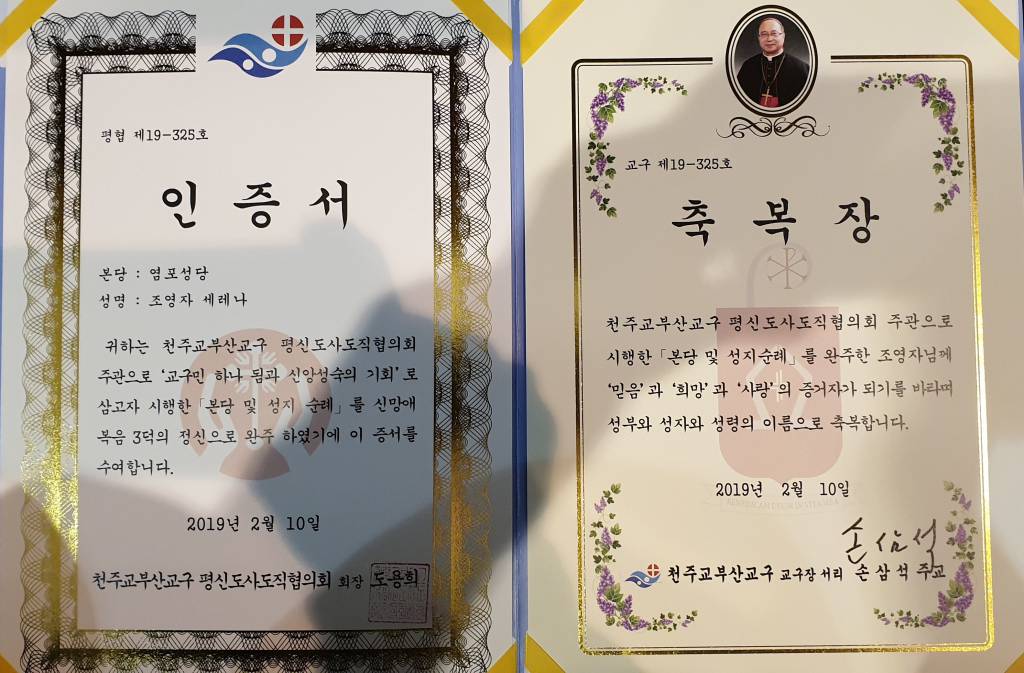 평협 제19-325호
인 증 서
본당 : 염포성당
성명 : 조영자 세레나
귀하는 천주교부산교구 평신도사도직협의회
주관으로 '교구민 하나 됨과 신앙성숙의 기회'로
삼고자 시행한「본당 및 성지 순례」를 신망애
복음 3덕의 정신으로 완주 하였기에 이 증서를
수여합니다.
2019년 2월 10일
천주교부산교구 평신도사도직협의회 회장 도용희
교구 제19-325호
축 복 장
천주교부산교구 평신도사도직협의회 주관으로
시행한「본당 및 성지순례」를 완주한 조영자님께
'믿음'과 '희망'과 '사랑'의 증거자가 되기를 바라며
성부와 성자와 성령의 이름으로 축복합니다.
2019년 2월 10일
손삼석
천주교부산교구 교구장 서리 손 삼 석 주교